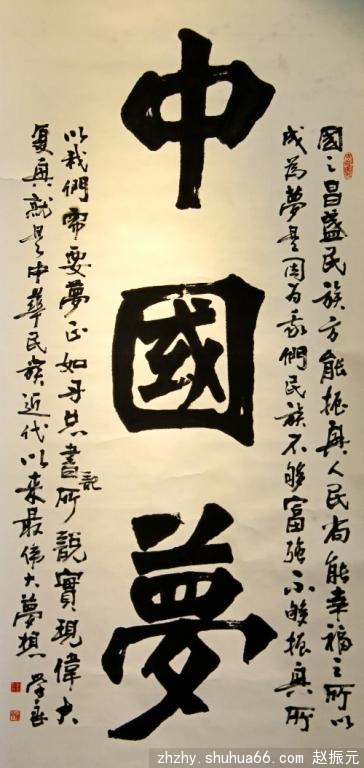 中國夢
國之昌盛民族方能振興人民尚能幸福之所以
成為夢是因为我們民族不够富強不够振興所
以我們需要夢正如習总書記所說實現偉大
复興就是中華民族近代以来最偉大夢想
zhzhy.shuhua66.com 赵振元